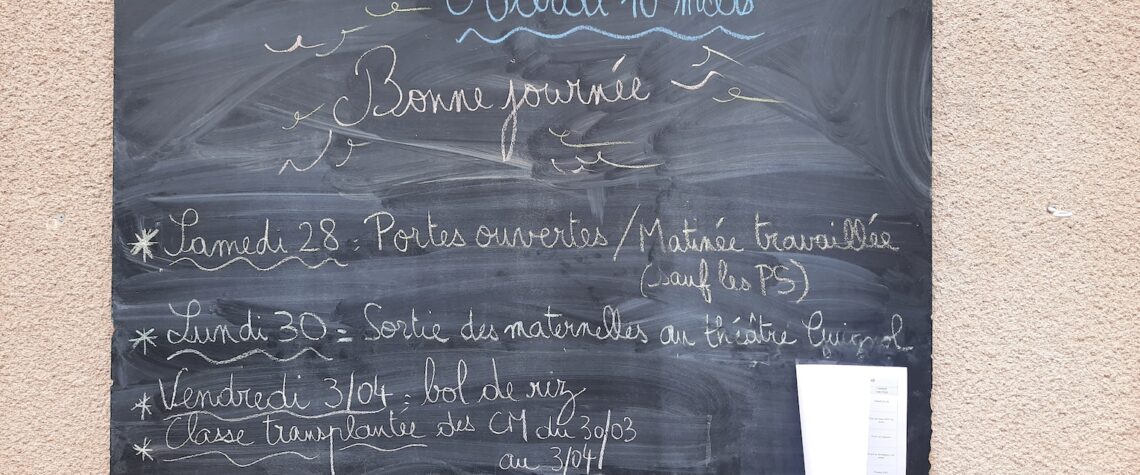 Mardi 10 mars
Bonne journée
* Samedi 28 : Portes ouvertes / Matinée travaillée
(sauf les PS)
* Lundi 30 = Sortie des maternelles au théâtre Guignol
* Vendredi 3/04 : bol de riz
* Classe transplantée des CM du 30/03
au 3/04